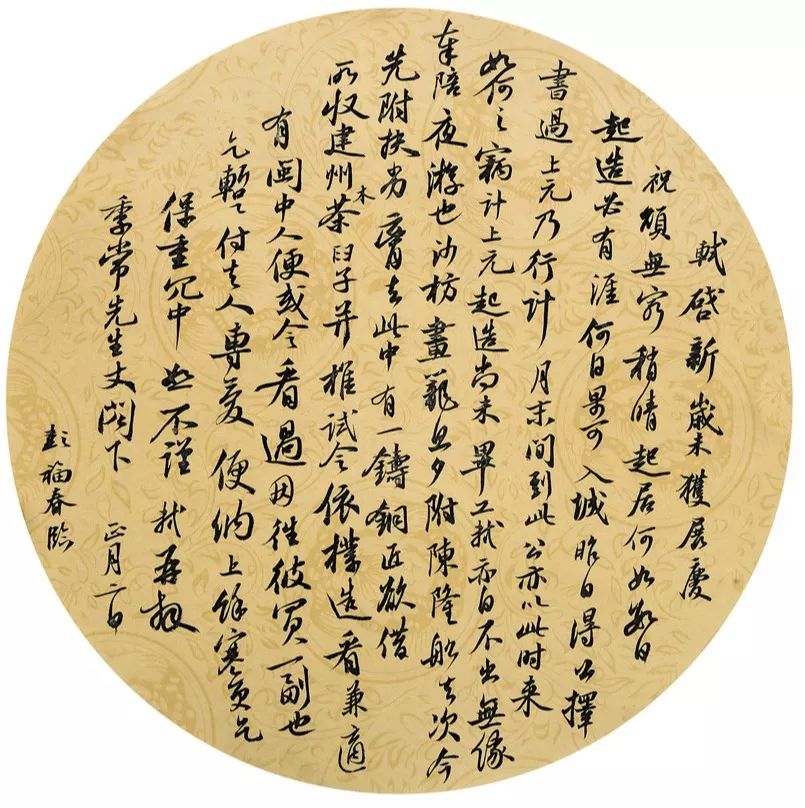 軾啓新歲未獲展慶
祝頌無窮稍晴起居何如數日
起造必有涯何日果可入城昨日得公擇
書過上元乃行計月末間到此公亦以此時来
如何〻竊計上元起造尚未畢工軾亦自不出無緣
奉陪夜游也沙枋畫籠旦夕附陳隆船去次今
先附扶劣膏去此中有一鑄銅匠欲借
所収建州木茶臼子并椎試令依樣造看兼適
有閩中人便或令看過因往彼買一副也
乞暫〻付去人專愛便納上餘寒更乞
保重冗中恕不謹軾再拜
季常先生丈閣下 正月二日
彭福春臨